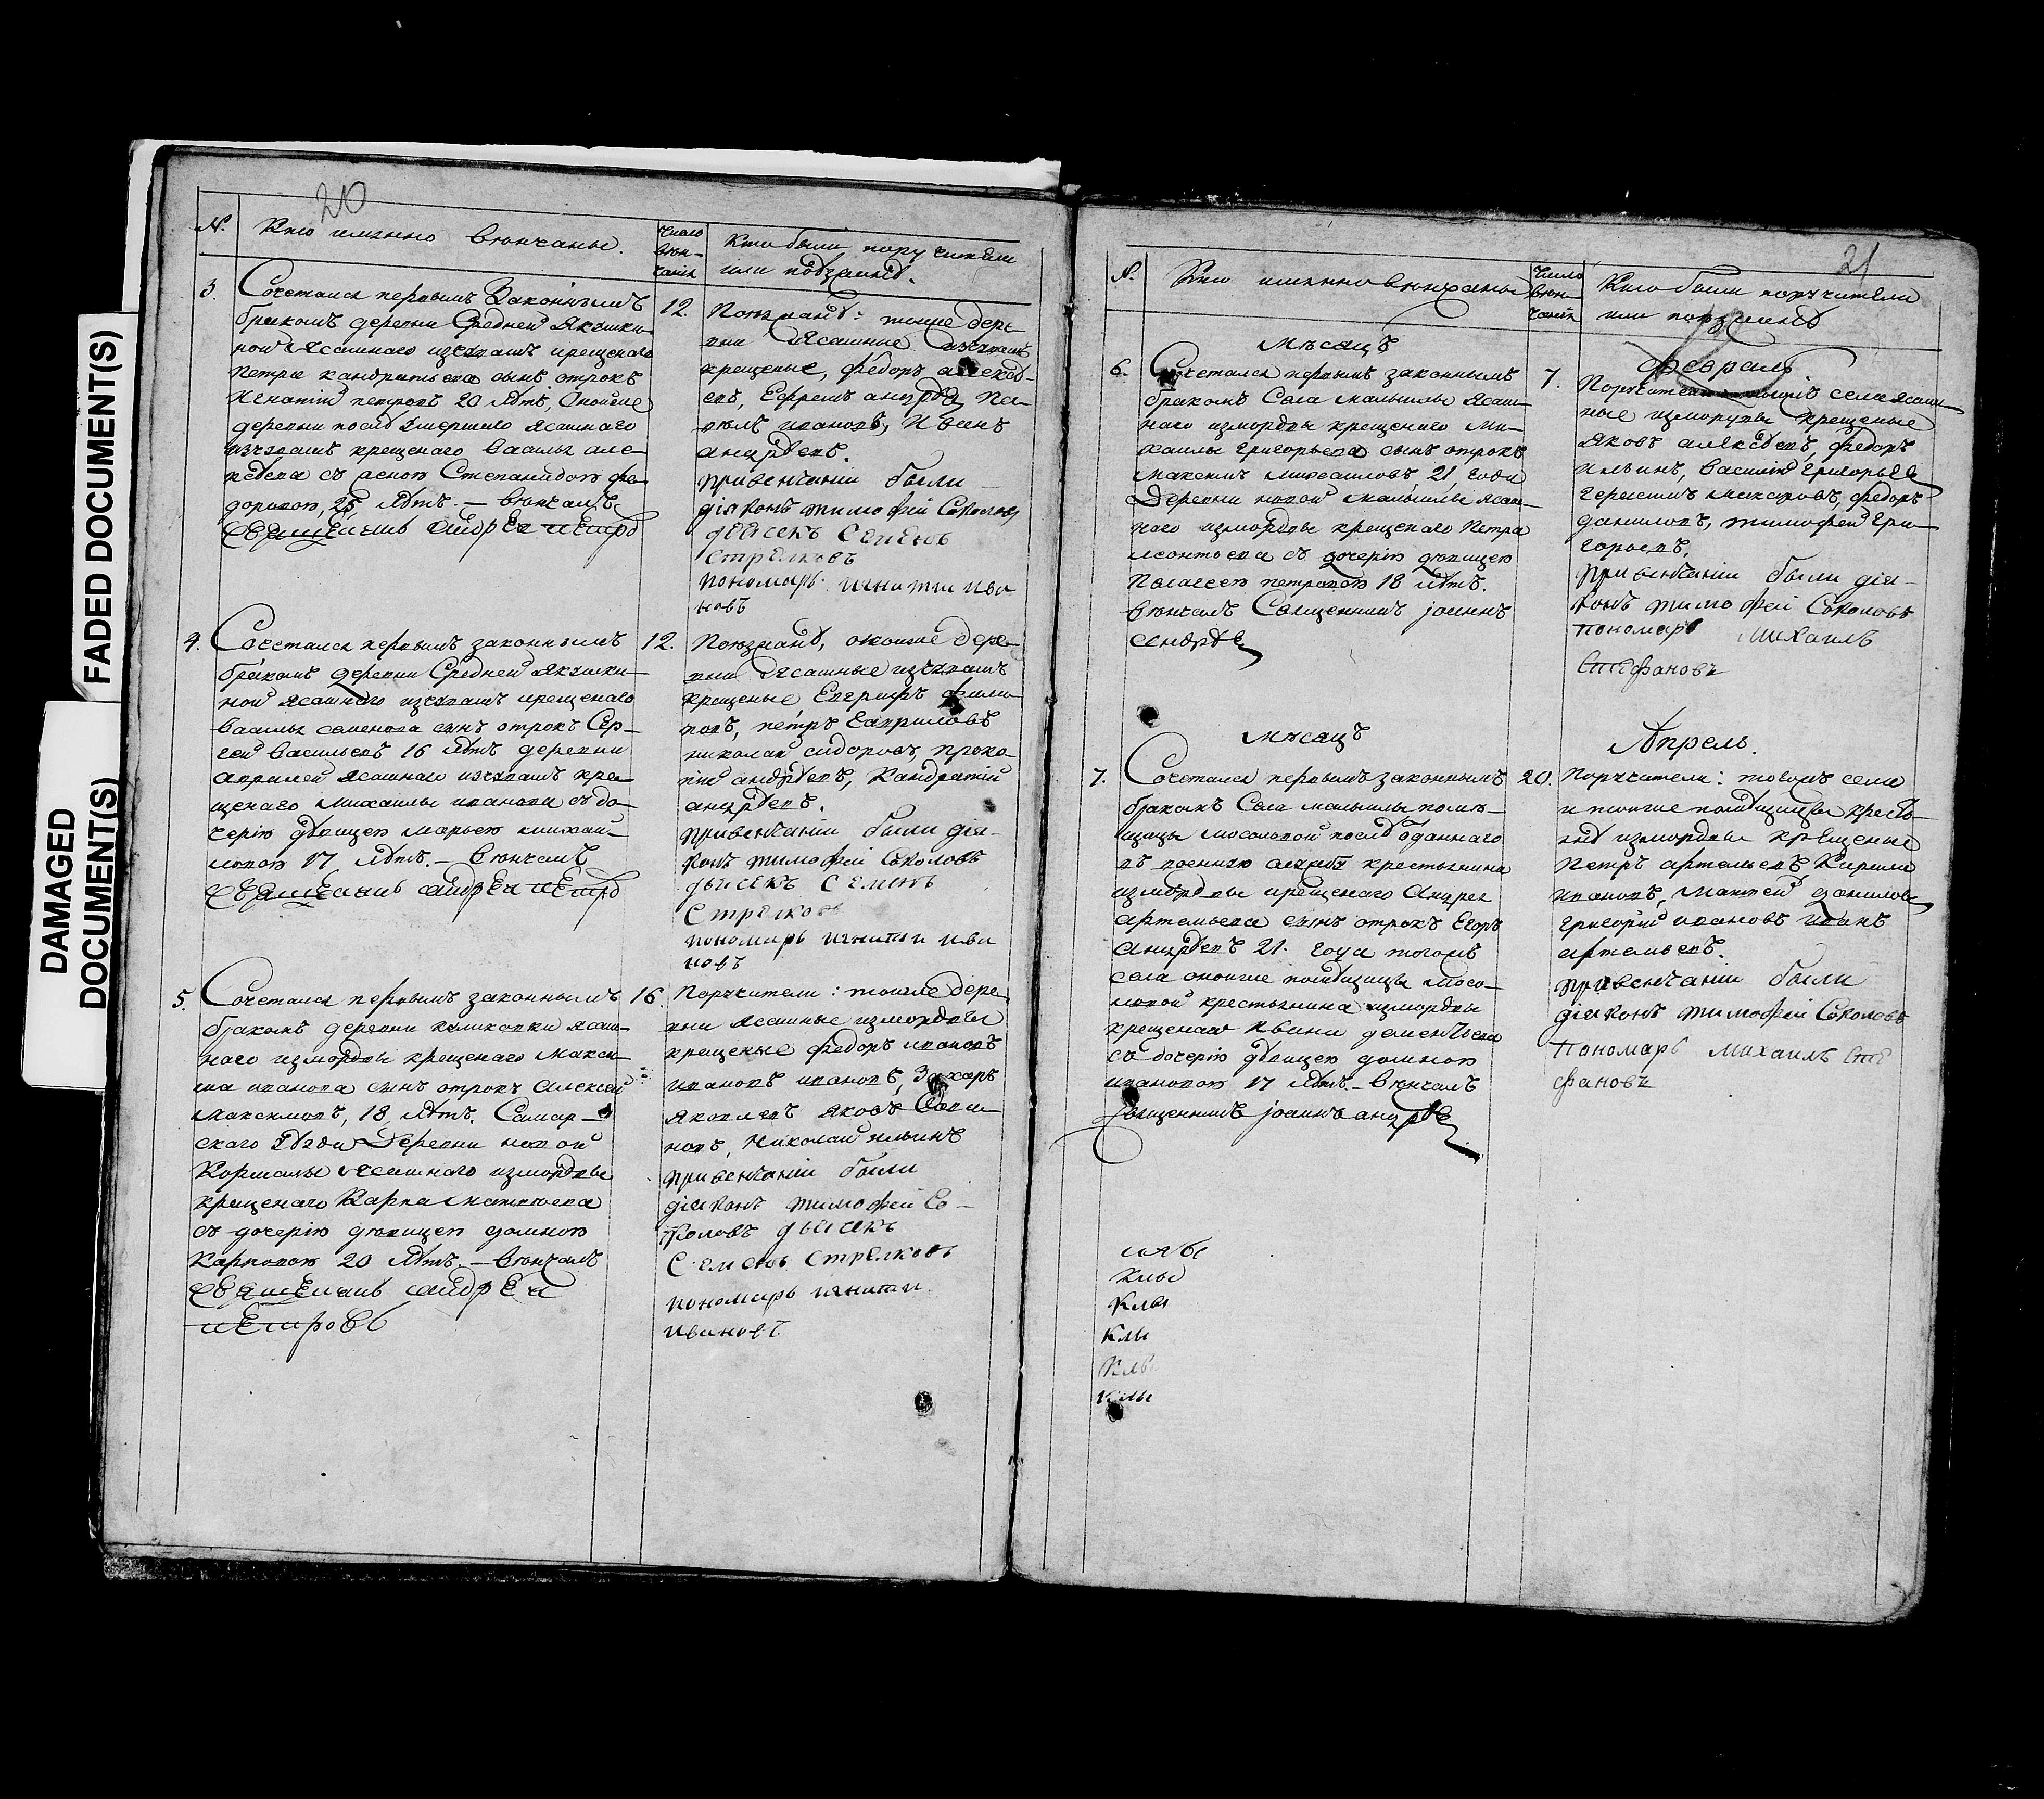 DAMAGED
DOCUMENT(S)
FADED DOCUMENT(S)
20
№.
Кто имянно вѣнчаны.
число
вѣн-
чанія
Кто были поручители
или поѣзжанѣ.
3.
Сочетался первымъ Законнымъ
бракомъ деревни Средней Якушки-
ной Ясашнаго изчувашъ крещенаго
Петра кандратьева сынъ отрокъ
Игнатій петровъ 20 лѣтъ, Оноиже
деревни послѣ умершаго Ясашнаго
изчувашъ крещенаго Василья але-
ксѣева съ женою Степанидою фе-
доровою, 25 лѣтъ. — вѣнчалъ
священникъ андреи петро
12.
Поѣзжанѣ: тоиже дере-
вни Ясашные изчувашъ
крещеные, федоръ алексѣ-
евъ, Ефремъ андрѣев Па-
велъ ивановъ, Иванъ
андрѣевъ.
привенчаніи были
діяконъ тимофей Соколовъ
дьячекъ Семенъ
Стрелковъ
пономарь игнатии ива
новъ
4.
Сочетался первымъ законнымъ
бракомъ деревни Средней Якушки-
ной Ясашнаго изчувашъ крещенаго
Василья семенова сынъ отрокъ Сер-
гей Васильевъ 16 лѣтъ деревни
Ясашнаго изчувашъ кре-
щенаго Михаилы иванова съ до-
черію дѣвицею марьею михаи-
ловою 17 лѣтъ. — вѣнчалъ
священникъ андреи петро
12.
Поѣзжанѣ, оноиже дере-
вни Ясашные изчувашъ
крещеные фили-
повъ, петръ Гавриловъ
николай сидоровъ, проко-
пій андрѣевъ, Кандратій
андрѣевъ.
привенчаніи были дія-
конъ тимофей Соколовъ
дьячекъ Семенъ
Стрелковъ
пономарь игнатии ива
новъ
5.
Сочетался первымъ законнымъ
бракомъ деревни Ясаш-
наго измордвы крещенаго Макси-
ма иванова сынъ отрокъ Алексей
Максимовъ, 18 лѣтъ. Самар-
скаго уѣзда Деревни новой
Кармалы Ясашнаго измордвы
крещенаго Карпа Матвѣева
съ дочерію дѣвицею домною
Карповою 20 лѣтъ. — вѣнчалъ
священникъ андреи
петровъ
16.
Поручители: тоиже дере
вни ясашные измордвы
крещеные федоръ ивановъ
ивановъ ивановъ, Захаръ
Яковлевъ Яковъ
новъ, Николай ильинъ
привенчаніи были
діяконъ тимофей Со-
коловъ дьячекъ
Семенъ Стрелковъ
пономарь игнатии
ивановъ
21
№.
Кто имянно вѣнчаны
число
вѣн-
чанія
Кто были поручители
или поѣзжанѣ
мѣсацъ
февраль
6.
Сочетался первымъ законнымъ
бракомъ Села малыклы Ясаш-
наго измордвы крещенаго Ми-
хаилы Григорьева сынъ отрокъ
максимъ михаиловъ, 21, года
Деревни новой малыклы Ясаш-
наго измордвы крещенаго Петра
леонтьева съ дочерію дѣвицею
Пелагеею петровою 18 лѣтъ.
вѣнчалъ Священникъ іоаннъ
андрѣев
7.
села Ясаш-
ные измордвы крещеные
Яковъ алексѣевъ, федоръ
ильинъ, василій Григорьев
герасимъ федоръ
даниловъ, тимофей Гри-
горьевъ.
привенчаніи были дія-
конъ тимофей Соколовъ
пономарь Михаилъ
Стефановъ
мѣсацъ
Апрель.
7.
Сочетался первымъ законнымъ
бракомъ Села малыклы помѣ-
щицы мосоловой послѣ отданнаго
въ военную службу крестьянина
измордвы крещенаго Андрея
артемьева сынъ отрокъ Егоръ
Андрѣевъ 21. года тогожъ
села оноиже помѣщицы Мосо-
ловой крестьянина измордвы
крещенаго Ивана дементьева
съ дочерію дѣвицею домною
ивановою 17 лѣтъ. — вѣнчалъ
священникъ іоаннъ андрѣев
20.
Поручители: тогожъ села
и тоиже помѣщицы кресть-
янѣ измордвы крещеные
Петръ артемьевъ, Кирила
ивановъ, Матвей данилов
Григорій ивановъ иванъ
артемьевъ.
привенчании были
діяконъ тимофей Соколовъ
пономарь михаилъ сте
фановъ
клы
клы
клы
клы
клы